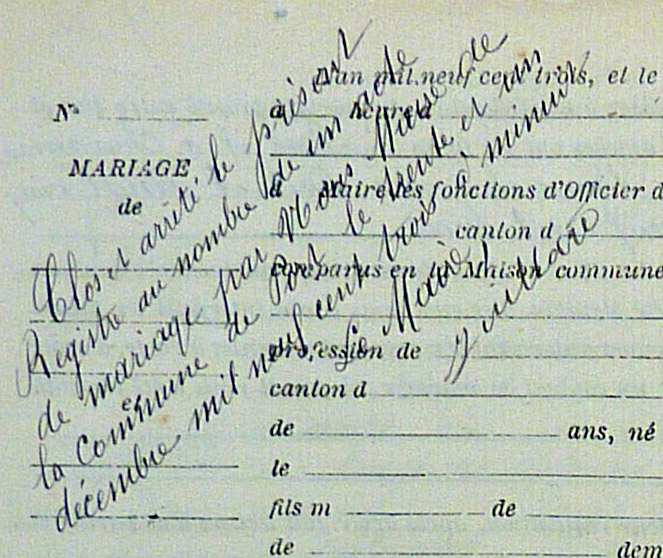 L'an mil neuf cent trois, et le
N°
à heure d
MARIAGE
de
d Maire les fonctions d'Officier d
canton d
comparus en la Maison commune
profession de
canton d
de ans, né
le
fils m de
de dem
Clos et arrêté le présent
Registre au nombre de un acte
de mariage par Nous Maire de
la Commune de Port le trente et un
décembre mil neuf cent trois à minuit
Le Maire